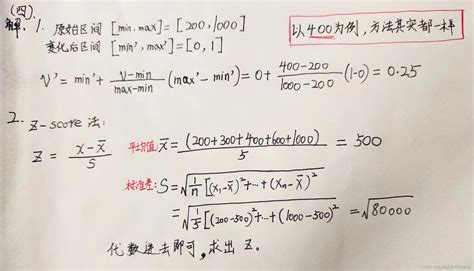 (四).
解: 1. 原始区间 [min, max] = [200, 1000]
变化后区间 [min', max'] = [0, 1]
以400为例, 方法其实都一样
V' = min' + \frac{v-min}{max-min} (max'-min') = 0 + \frac{400-200}{1000-200} (1-0) = 0.25
2. Z-score 法:
Z = \frac{x-\bar{x}}{S} 平均值: \bar{x} = \frac{(200+300+400+600+1000)}{5} = 500
标准差: S = \sqrt{\frac{1}{n}[(x_1-\bar{x})^2+\cdots+(x_n-\bar{x})^2}
= \sqrt{\frac{1}{5}[(200-500)^2+\cdots+(1000-500)^2} = \sqrt{80000}
代数进去即可, 求出 Z.